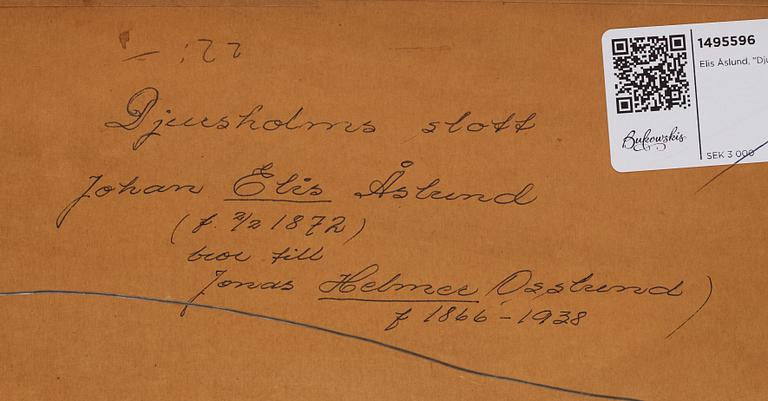 – : 22
1495596
Elis Åslund, "Dju
Bukowskis
SEK 3 000
Djursholms slott
Johan Elis Åslund
(f. 2/2 1872)
bror till
Jonas Helmer Osslund)
f 1866 – 1938